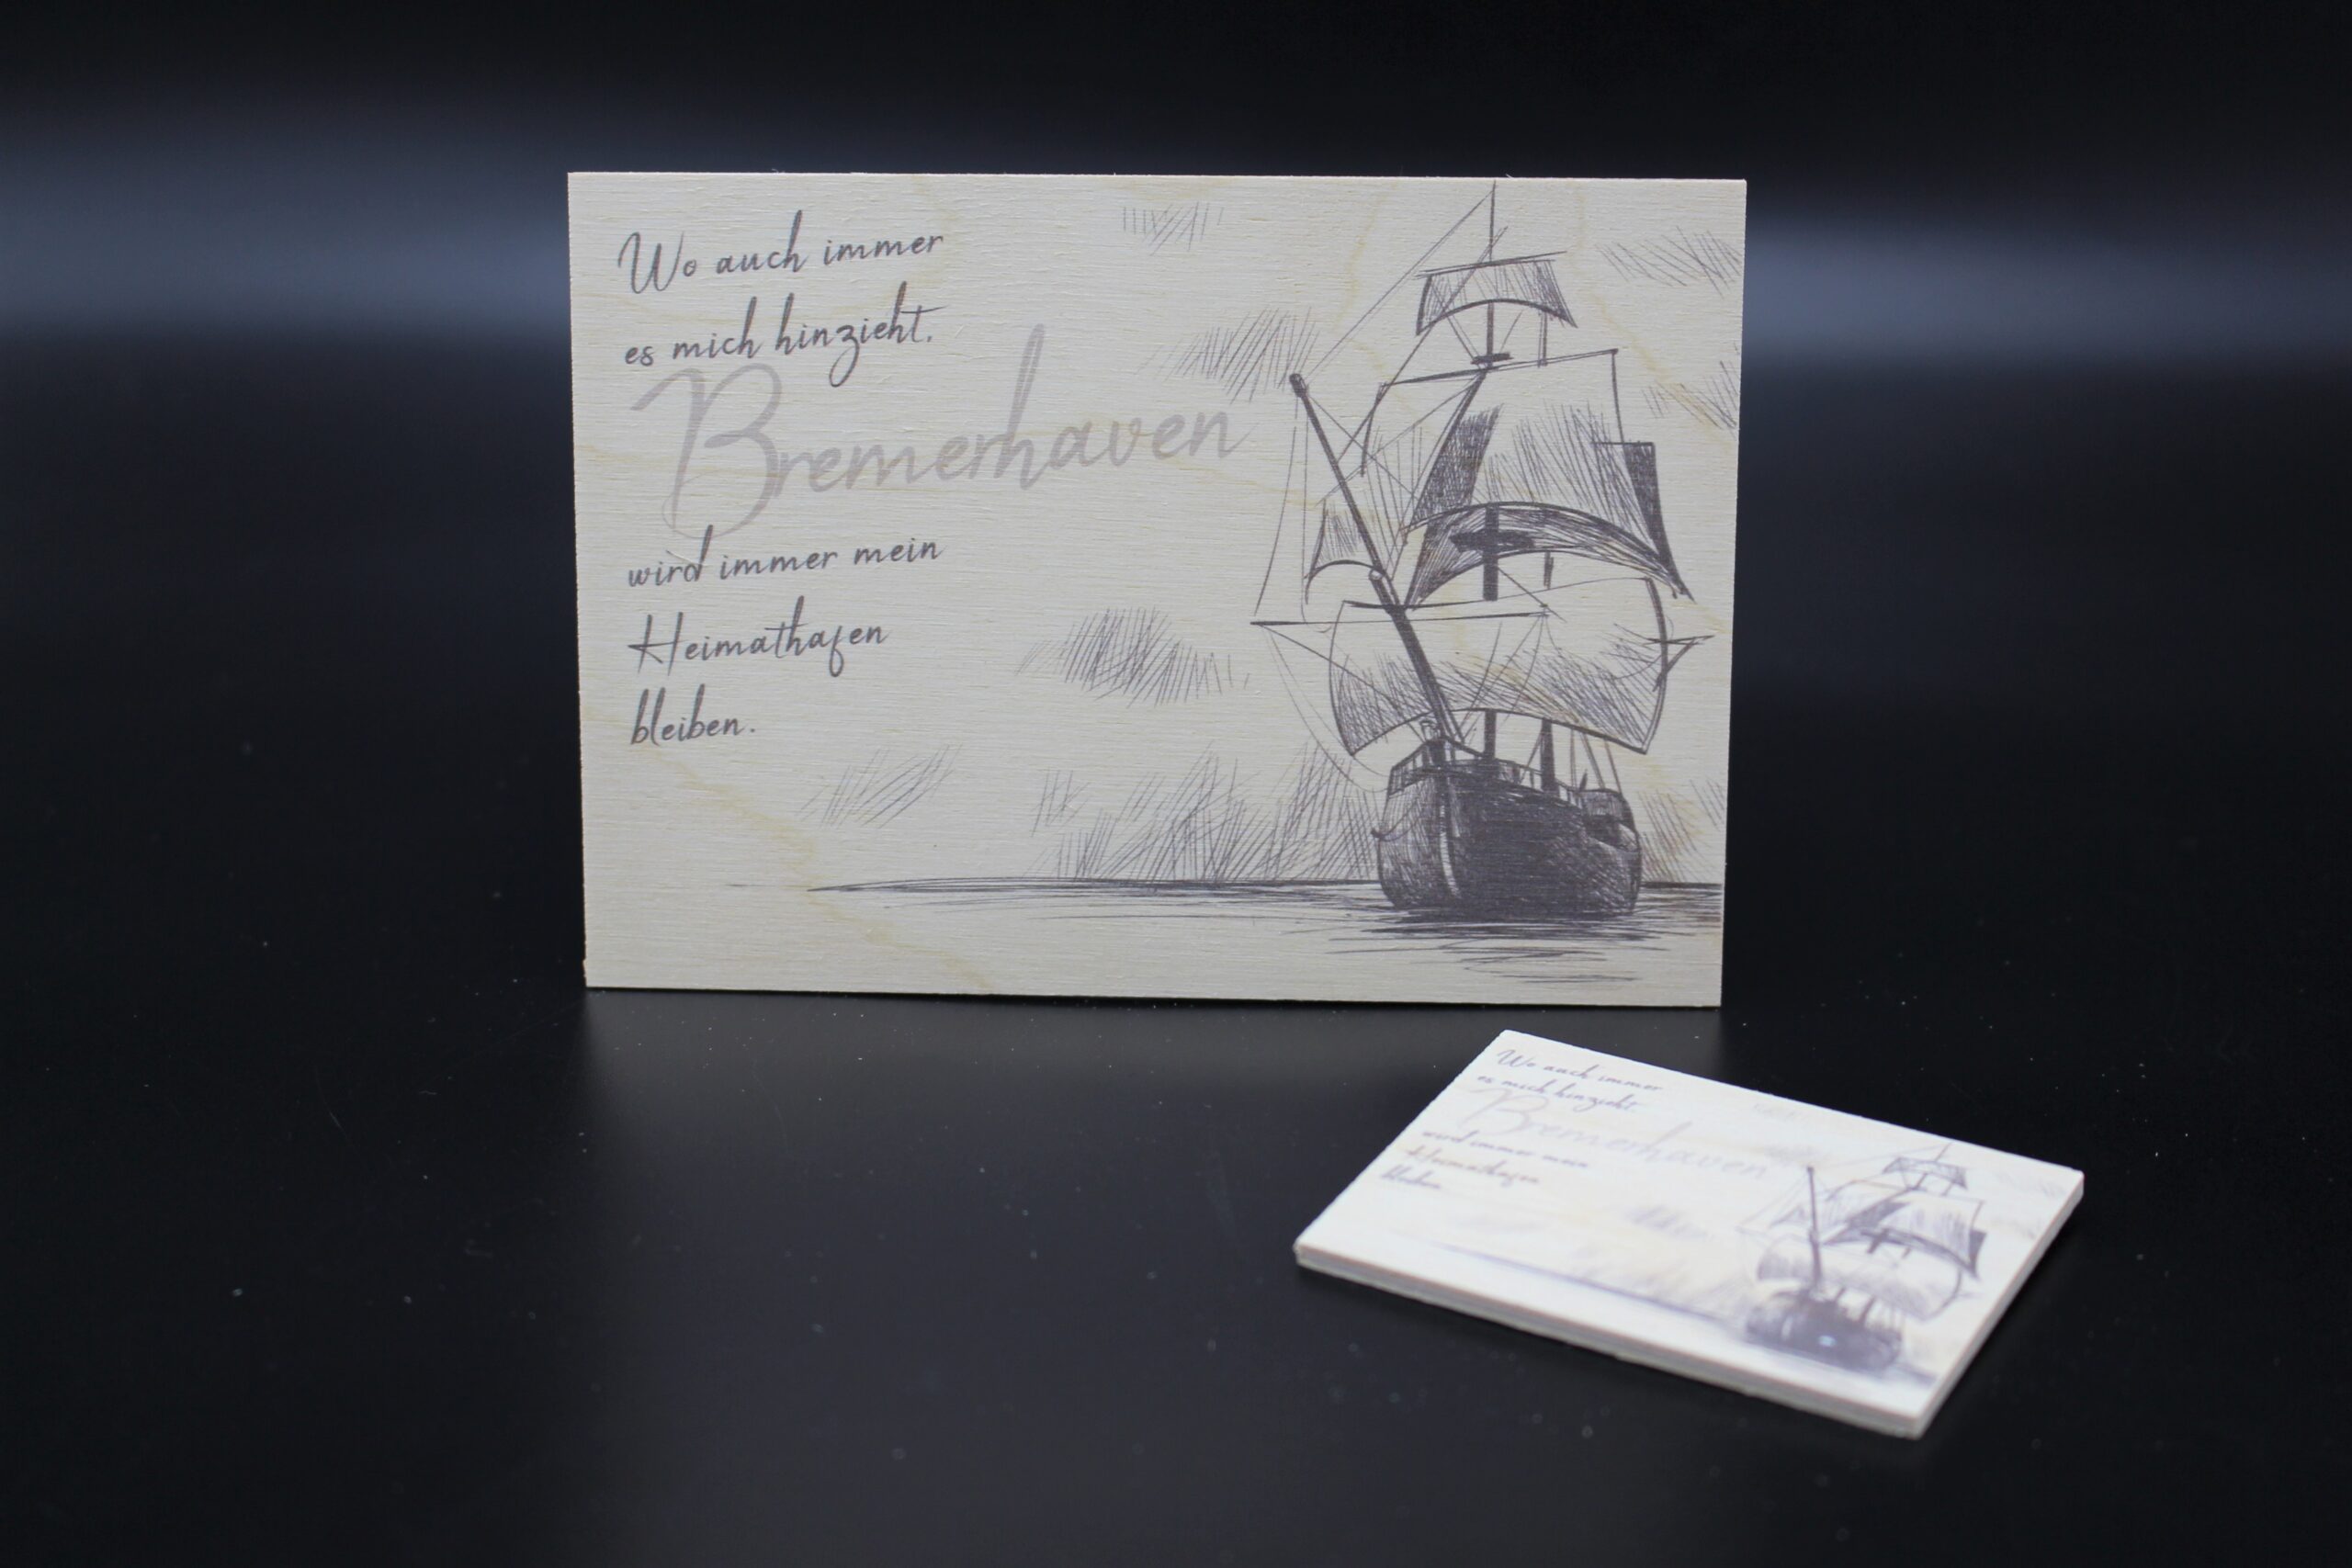 Wo auch immer
es mich hinzieht,
Bremerhaven
wird immer mein
Heimathafen
bleiben.
Wo auch immer
es mich hinzieht,
Bremerhaven
wird immer mein
Heimathafen
bleiben.